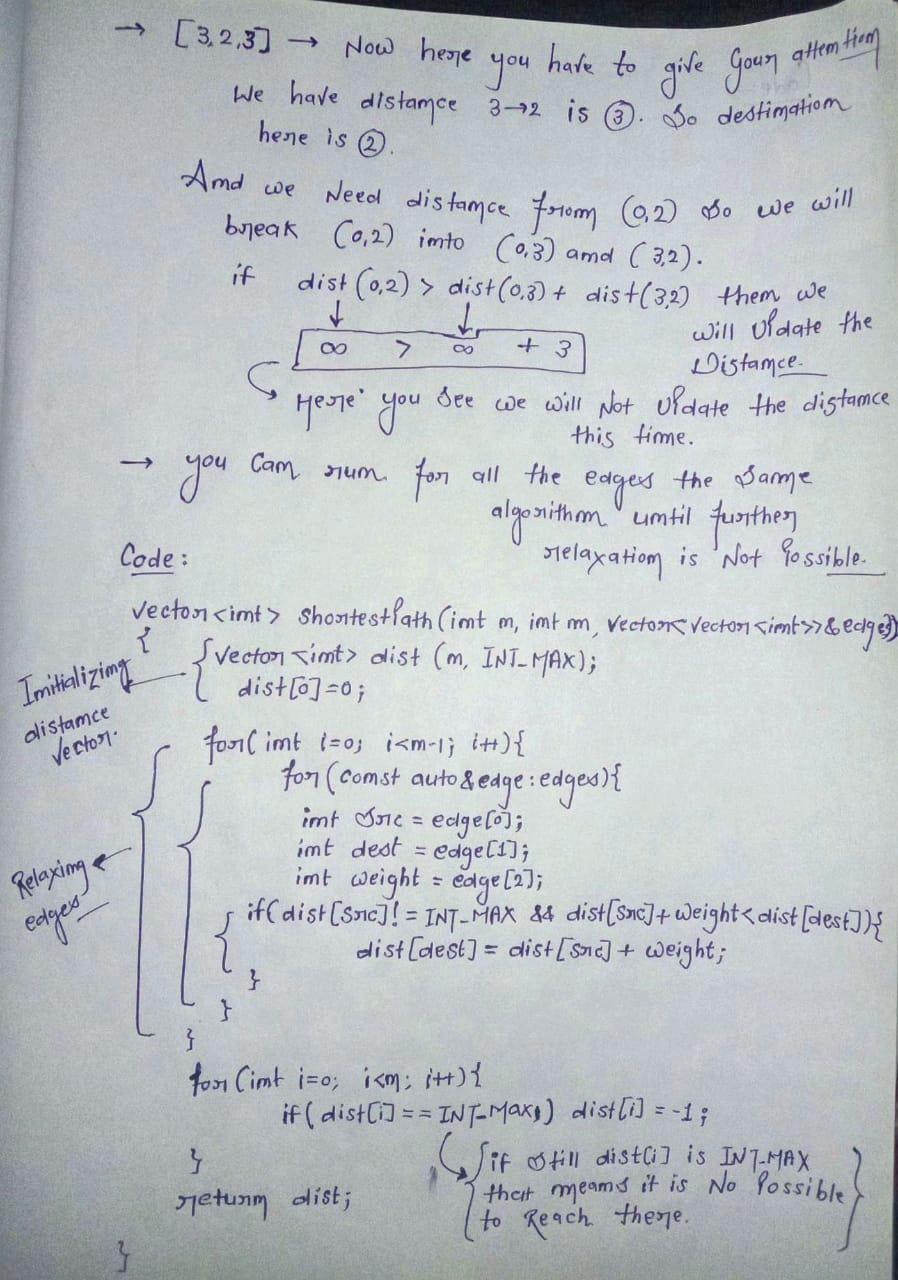 → [3,2,3] → Now here you have to give your attention
We have distance 3→2 is ③. So destination
here is ②.
And we Need distance from (0,2) so we will
break (0,2) into (0,3) and (3,2).
if dist (0,2) > dist(0,3) + dist(3,2) then we
will Update the
Distance.
∞ > ∞ + 3
Here you see we will Not Update the distance
this time.
→ you can run for all the edges the same
algorithm until further
relaxation is Not Possible.
Code:
vector<int> shortestPath(int n, int m, vector<vector<int>>&edges)
{
Initializing distance vector.
vector<int> dist (n, INT_MAX);
dist[0]=0;
for(int i=0; i<n-1; i++){
for(const auto&edge:edges){
int src = edge[0];
int dest = edge[1];
int weight = edge[2];
Relaxing edges
if(dist[src]!= INT_MAX && dist[src]+weight<dist[dest]){
dist[dest] = dist[src] + weight;
}
}
}
for(int i=0; i<n; i++){
if(dist[i]==INT_MAX) dist[i] = -1;
}
if still dist[i] is INT_MAX
that means it is No Possible
to Reach there.
return dist;
}